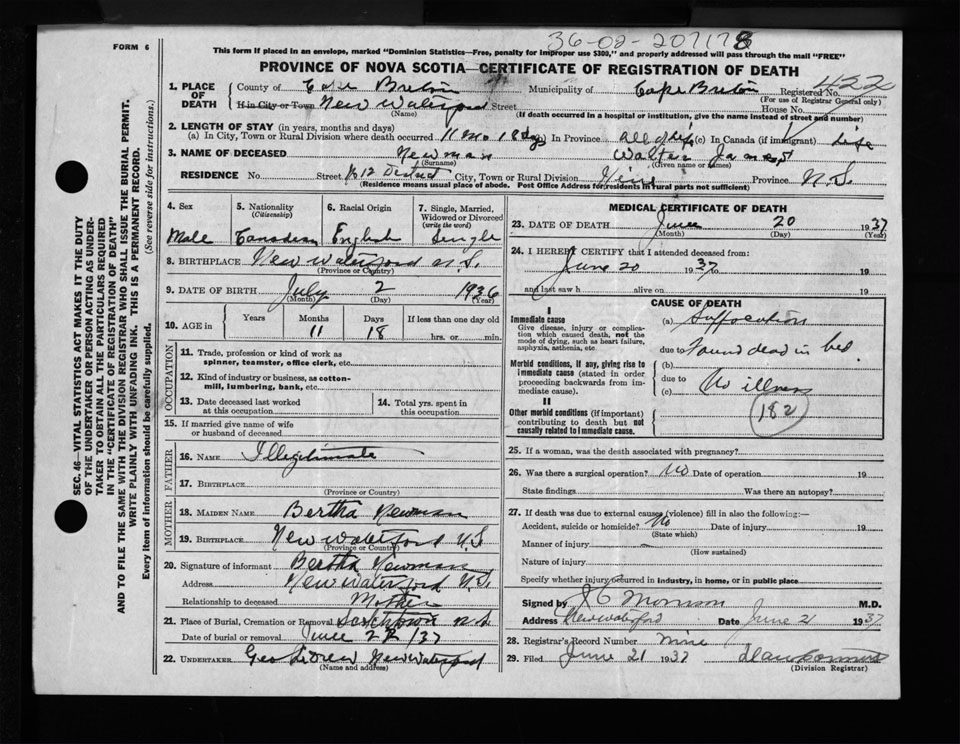 36-02-207178
FORM 6
This form if placed in an envelope, marked "Dominion Statistics—Free, penalty for improper use $300," and properly addressed will pass through the mail "FREE"
PROVINCE OF NOVA SCOTIA—CERTIFICATE OF REGISTRATION OF DEATH
1. PLACE OF DEATH County of Cape Breton Municipality of Cape Breton Registered No. 422
(For use of Registrar General only)
If in City or Town New Waterford Street House No.
(Name) (If death occurred in a hospital or institution, give the name instead of street and number)
2. LENGTH OF STAY (in years, months and days)
(a) In City, Town or Rural Division where death occurred 11 mo 18 dys In Province all of life (c) In Canada (if immigrant) Life
3. NAME OF DECEASED Newman Walter James
(Surname) (Given name or names)
RESIDENCE No. Street No 12 District City, Town or Rural Division Province N.S.
(Residence means usual place of abode. Post Office Address for residents in rural parts not sufficient)
4. Sex 5. Nationality (Citizenship) 6. Racial Origin 7. Single, Married, Widowed or Divorced (write the word)
Male Canadian English Single
8. BIRTHPLACE New Waterford N.S.
(Province or Country)
9. DATE OF BIRTH July 2 1936
(Month) (Day) (Year)
10. AGE in Years Months Days If less than one day old
11 18 hrs. or min.
OCCUPATION
11. Trade, profession or kind of work as spinner, teamster, office clerk, etc.
12. Kind of industry or business, as cotton-mill, lumbering, bank, etc.
13. Date deceased last worked at this occupation
14. Total yrs. spent in this occupation
15. If married give name of wife or husband of deceased
FATHER
16. NAME Illegitimate
17. BIRTHPLACE
(Province or Country)
MOTHER
18. MAIDEN NAME Bertha Newman
19. BIRTHPLACE New Waterford N.S
(Province or Country)
20. Signature of informant Bertha Newman
Address New Waterford N.S.
Relationship to deceased Mother
21. Place of Burial, Cremation or Removal Scotchtown N.S
Date of burial or removal June 22/37
22. UNDERTAKER Geo New Waterford
(Name and address)
MEDICAL CERTIFICATE OF DEATH
23. DATE OF DEATH June 20 1937
(Month) (Day) (Year)
24. I HEREBY CERTIFY that I attended deceased from:
June 20 1937 to 19
and last saw h alive on 19
CAUSE OF DEATH
I
Immediate cause
Give disease, injury or complication which caused death, not the mode of dying, such as heart failure, asphyxia, asthenia, etc.
(a) Suffocation
due to Found dead in bed
Morbid conditions, if any, giving rise to immediate cause (stated in order proceeding backwards from immediate cause).
(b)
due to
(c) No illness
182
II
Other morbid conditions (if important) contributing to death but not causally related to immediate cause.
25. If a woman, was the death associated with pregnancy?
26. Was there a surgical operation? No Date of operation 19
State findings Was there an autopsy?
27. If death was due to external causes (violence) fill in also the following:—
Accident, suicide or homicide? No Date of injury 19
(State which)
Manner of injury
(How sustained)
Nature of injury
Specify whether injury occurred in industry, in home, or in public place
Signed by J C Morrison M.D.
Address New Waterford Date June 21 1937
28. Registrar's Record Number nine
29. Filed June 21 1937
(Division Registrar)
SEC. 46—VITAL STATISTICS ACT MAKES IT THE DUTY
OF THE UNDERTAKER OR PERSON ACTING AS UNDER-
TAKER TO OBTAIN ALL THE PARTICULARS REQUIRED
IN THE "CERTIFICATE OF REGISTRATION OF DEATH"
AND TO FILE THE SAME WITH THE DIVISION REGISTRAR WHO SHALL ISSUE THE BURIAL PERMIT.
WRITE PLAINLY WITH UNFADING INK. THIS IS A PERMANENT RECORD.
Every item of information should be carefully supplied. (See reverse side for instructions.)